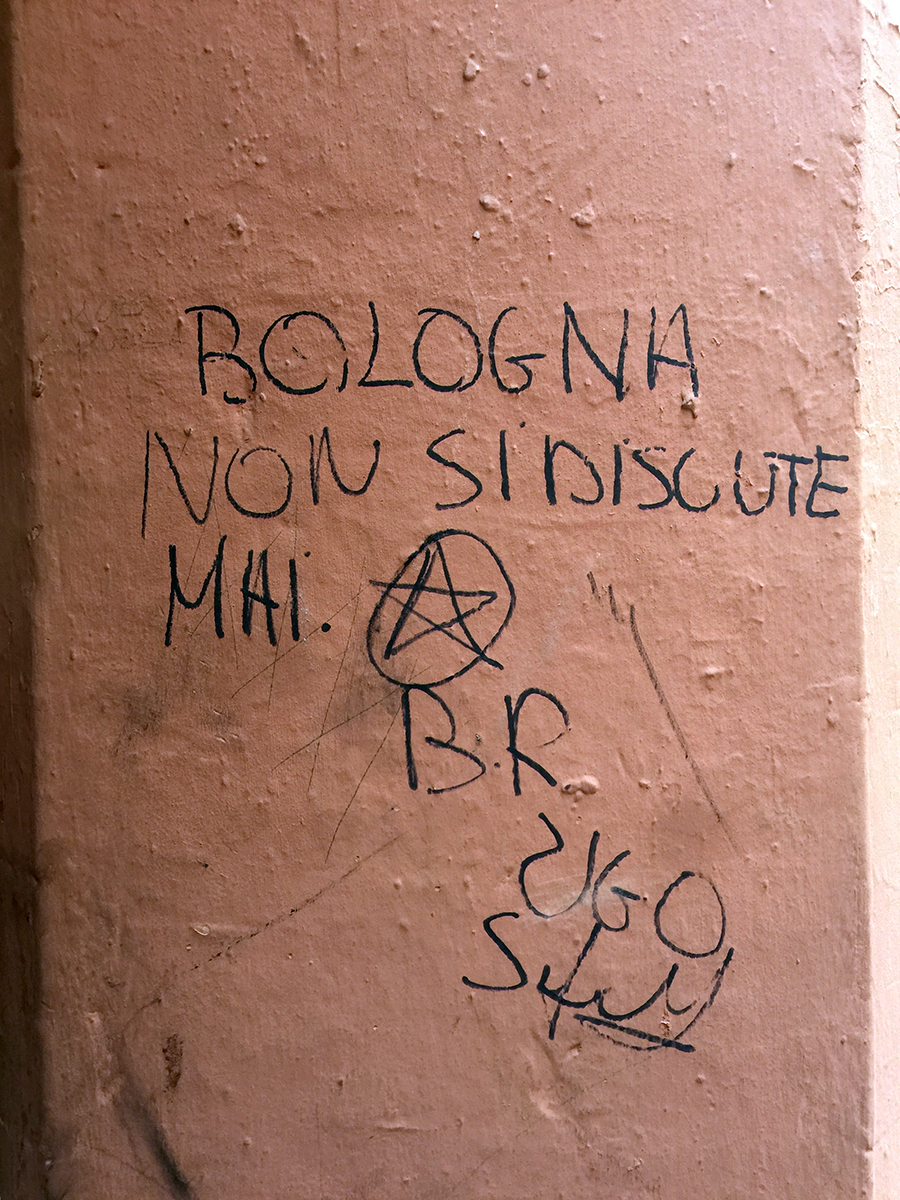 BOLOGNA
NON SI DISCUTE
MAI.
B.R
UGO